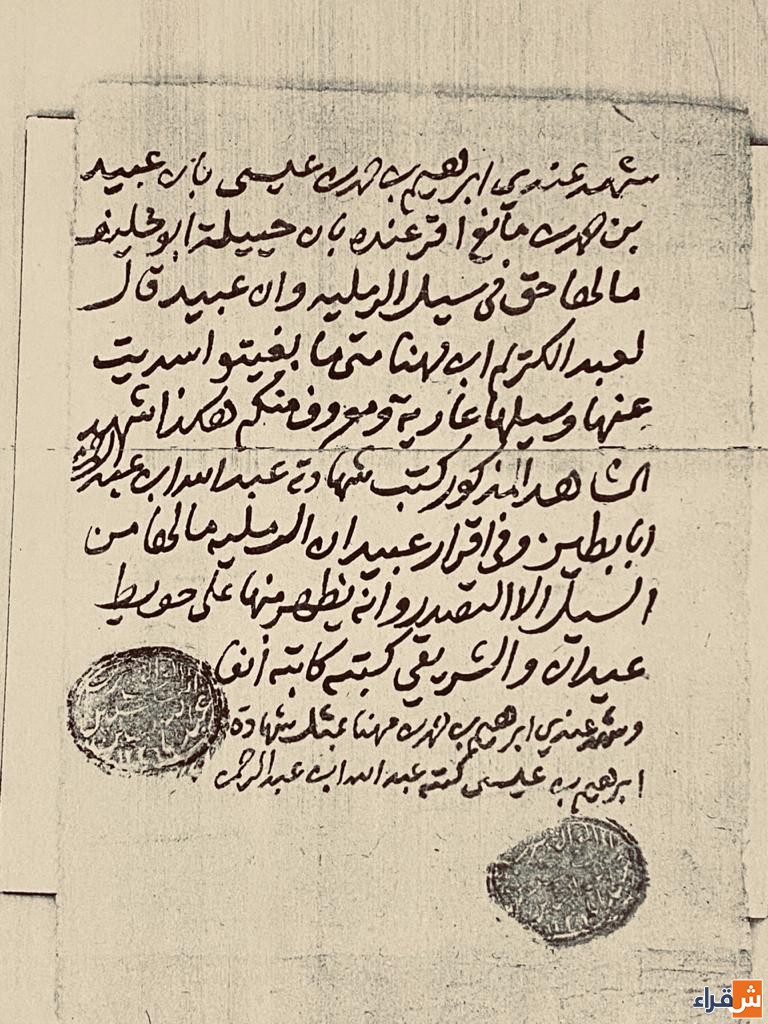 شهد عندي ابرهيم بن حمد بن عيسى بان عبيد
بن حمد بن مانع اقر عنده بان حييلة ابو خليف
مالها حق في سيل الرمليه وان عبيد قال
لعبد الكريم ابن مهنا متى ما بغيتو اسديت
عنها وسيلها عارية ومعروف منكم هكذا شهد
الشاهد المذكور كتب شهادته عبد الله ابن عبد الرحمن
ابابطين وفي اقرار عبيد ان الرمليه مالها من
السيل الا وانه يظهر منها على حويط
عيدان والشريقي كتبه كاتبه انفا
وشهد عندي ابرهيم بن حمد بن مهنا بمثل شهادة
ابرهيم بن عيسى كتبه عبد الله ابن عبد الرحمن
شقراء